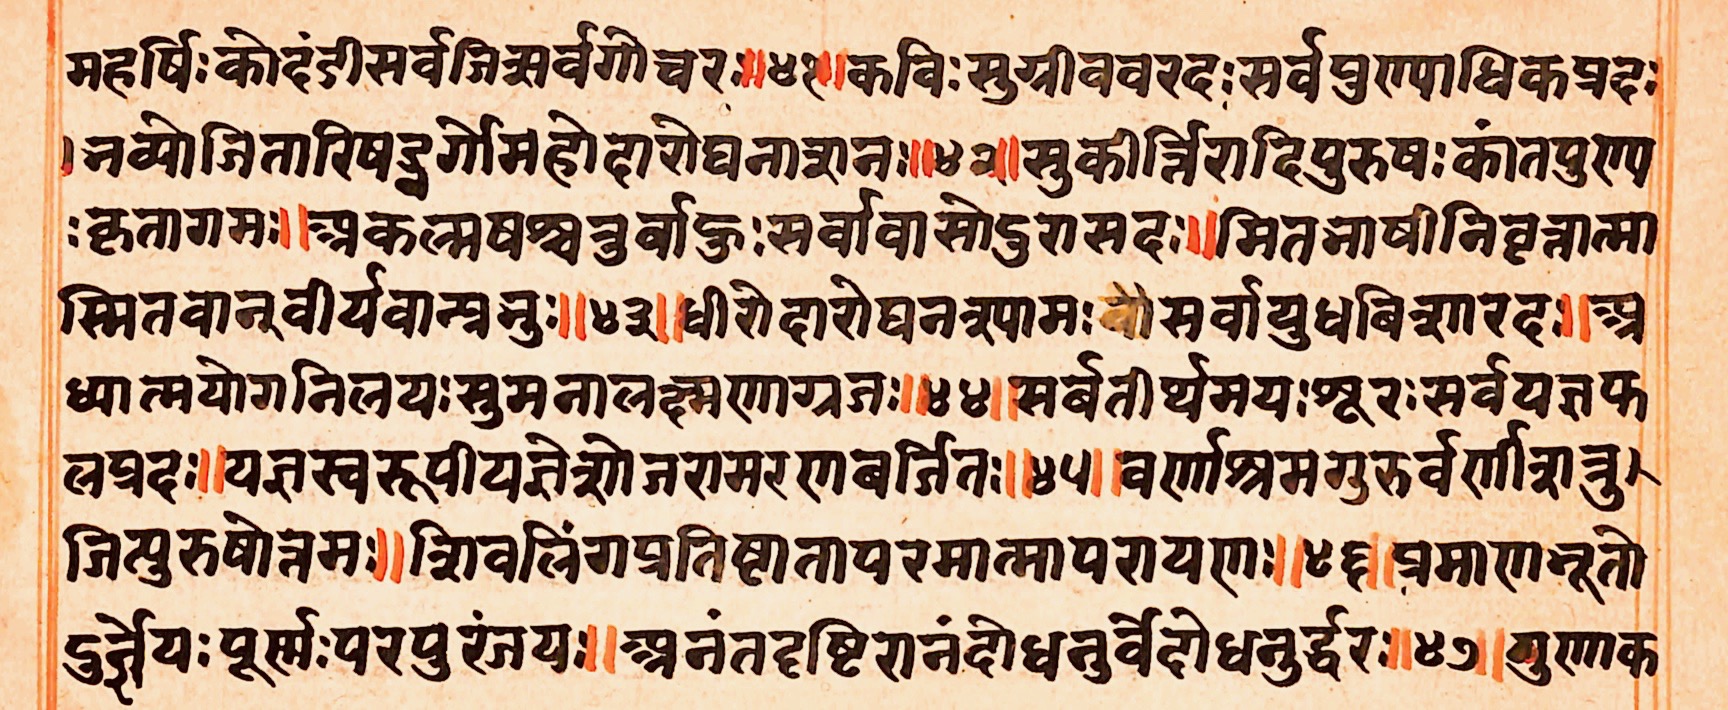 महर्षिःकोदंडीसर्वजित्सर्वगोचरः॥४१॥कविःसुग्रीववरदःसर्वपुण्याधिकप्रदः
।नव्योजितारिषड्वर्गोमहोदारोघनाशनः॥४२॥सुकीर्त्तिरादिपुरुषःकांतपुण्य
ःकृतागमः॥अकल्मषश्चतुर्बाहुःसर्वावासोदुरासदः॥मितभाषीनिवृत्तात्मा
स्मितवान्वीर्यवान्प्रभुः॥४३॥धीरोदारोघनश्यामःसर्वायुधबिशारदः॥अ
ध्यात्मयोगनिलयःसुमनालक्ष्मणाग्रजः॥४४॥सर्बतीर्थमयःशूरःसर्वयज्ञफ
लप्रदः॥यज्ञस्वरूपीयज्ञेशोजरामरणबर्जितः॥४५॥वर्णाश्रमगुरुर्वर्णीशत्रु
जित्पुरुषोत्तमः॥शिवलिंगप्रतिष्टातापरमात्मापरायणः॥४६॥प्रमाणभूतो
दुर्ज्ञेयःपूर्णःपरपुरंजयः॥अनंतदृष्टिरानंदोधनुर्वेदोधनुर्द्धरः॥४७॥गुणाक